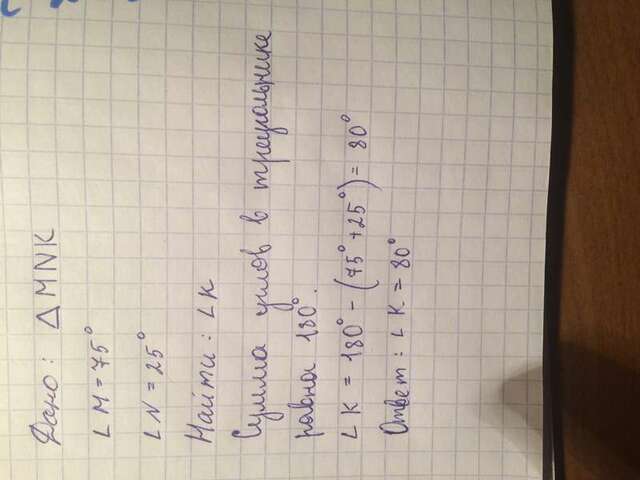 Дано: △ MNK
∠ M = 75°
∠ N = 25°
Найти: ∠ K
Сумма углов в треугольнике
равна 180°.
∠ K = 180° - (75° + 25°) = 80°
Ответ: ∠ K = 80°